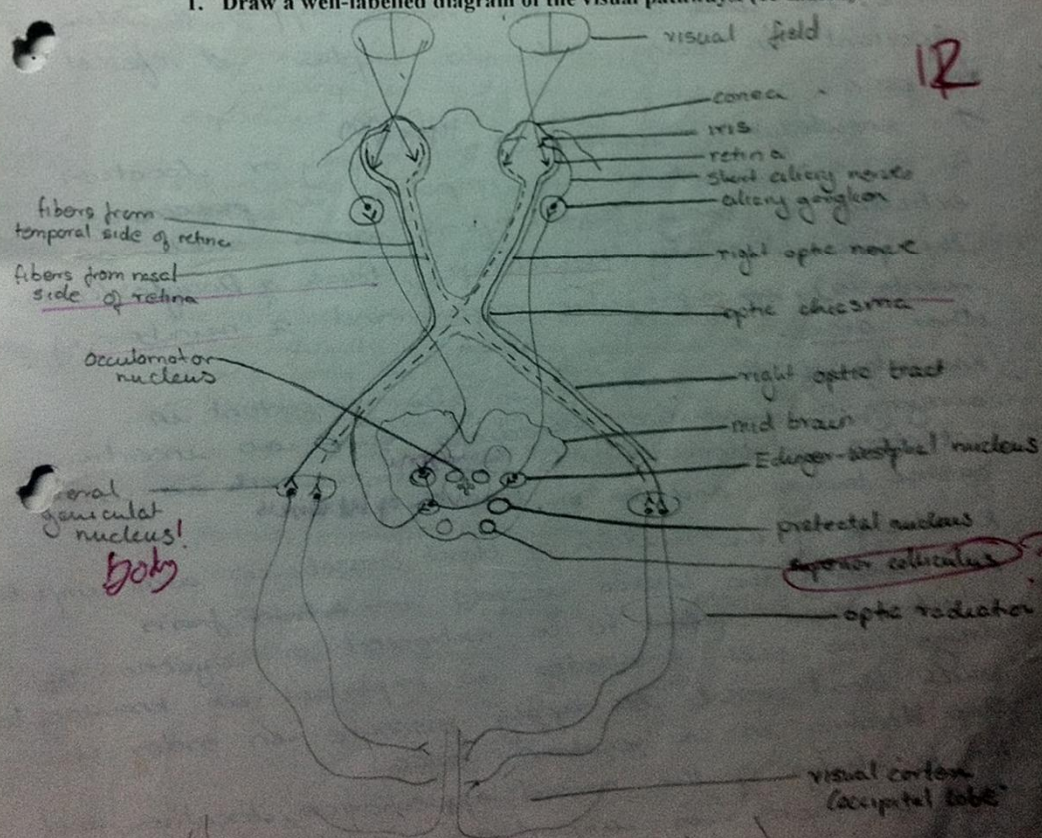 1. Draw a well-labelled diagram of the visual pathways
visual field
12
conea
iris
retina
short ciliary nerves
ciliary ganglion
fibers from
temporal side of retina
fibers from nasal
side of retina
right optic nerve
optic chiasma
occulomotor
nucleus
right optic tract
mid brain
Edinger-Westphal nucleus
geniculat
nucleus!
Body
pretectal nucleus
superior colliculus
optic radiation
visual cortex
(occipital lobe